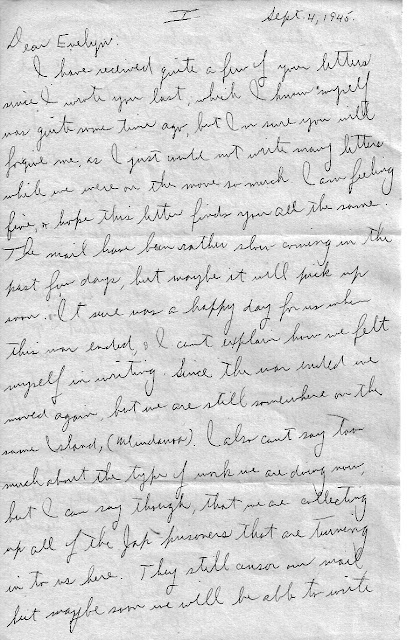 I
Sept. 4, 1945.
Dear Evelyn.
I have received quite a few of your letters
since I wrote you last, which I know myself
was quite some time ago, but I'm sure you will
forgive me, as I just could not write many letters
while we were on the move so much. I am feeling
fine, & hope this letter finds you all the same.
The mail have been rather slow coming in the
past few days, but maybe it will pick up
soon. It sure was a happy day for us when
this war ended, & I cant explain how we felt
myself in writing. Since the war ended we
moved again, but we are still somewhere on the
same Island, (Mindanao). I also cant say too
much about the type of work we are doing now,
but I can say though, that we are collecting
up all of the Jap prisoners that are turning
in to us here. They still censor our mail
but maybe soon we will be able to write